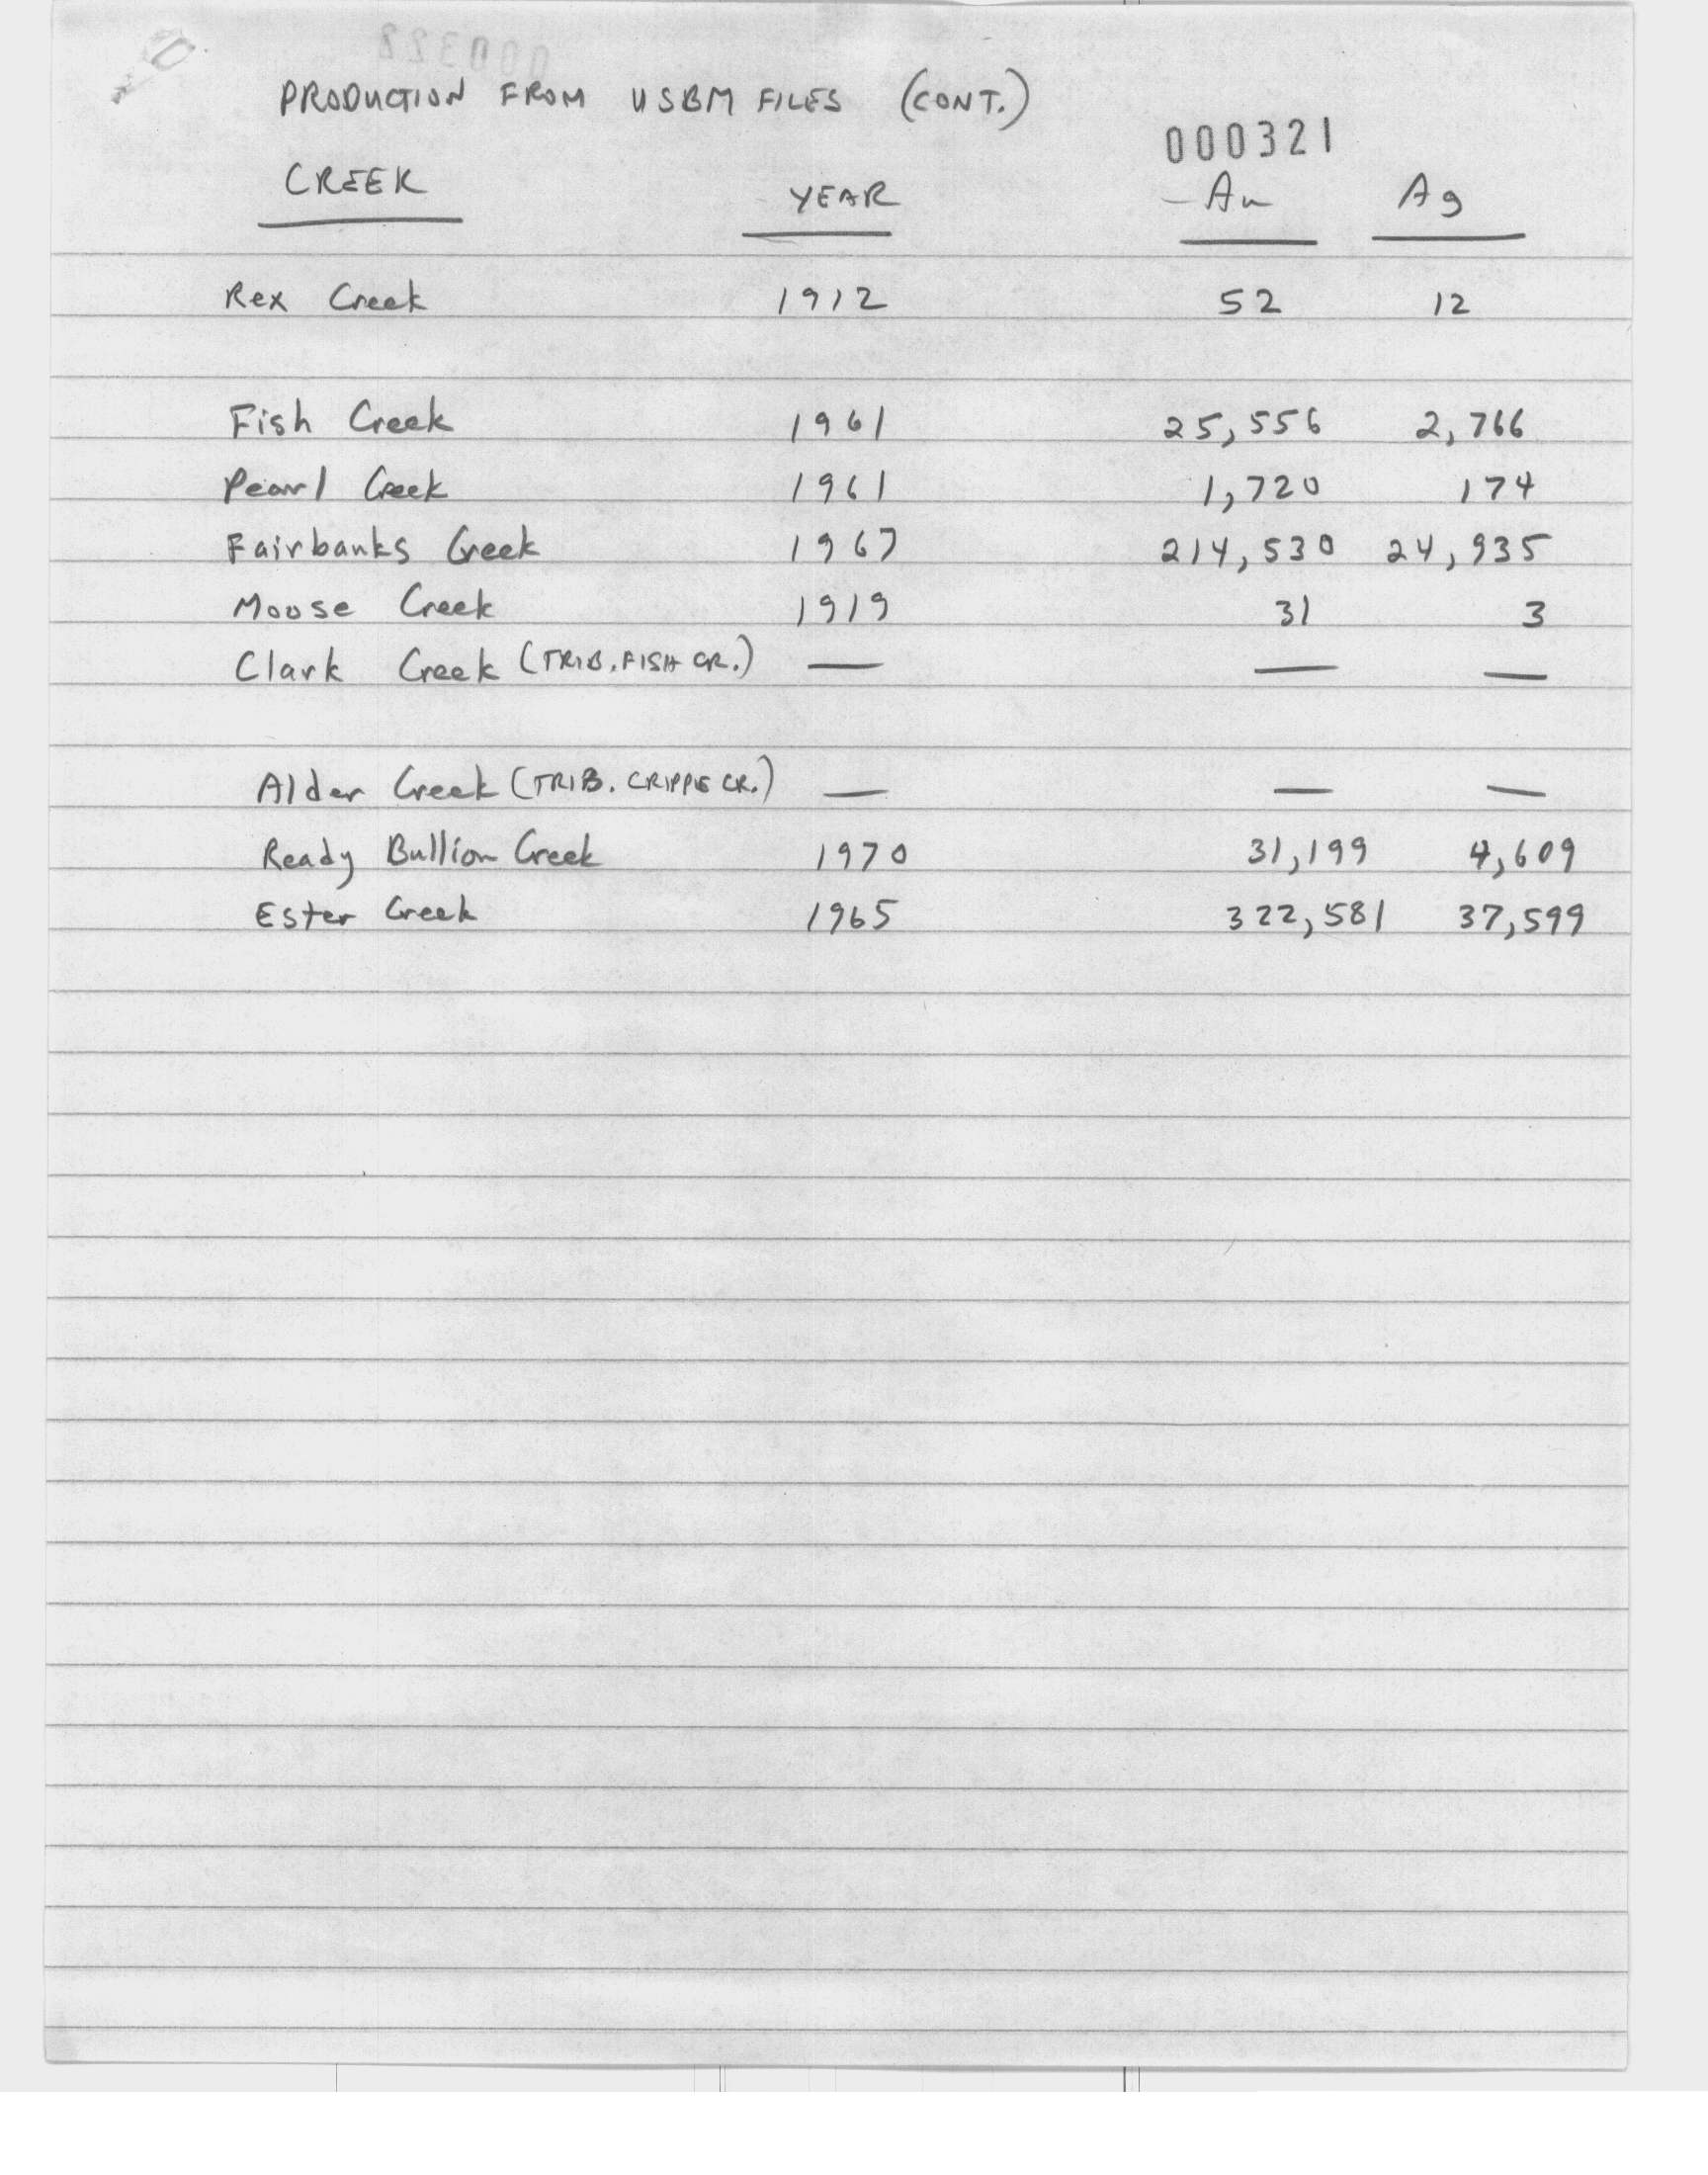 PRODUCTION FROM USBM FILES (CONT.)
000321
CREEK YEAR Au Ag
Rex Creek 1912 52 12
Fish Creek 1961 25,556 2,766
Pearl Creek 1961 1,720 174
Fairbanks Creek 1967 214,530 24,935
Moose Creek 1919 31 3
Clark Creek (TRIB. FISH CR.) — — —
Alder Creek (TRIB. CRIPPLE CR.) — — —
Ready Bullion Creek 1970 31,199 4,609
Ester Creek 1965 322,581 37,599